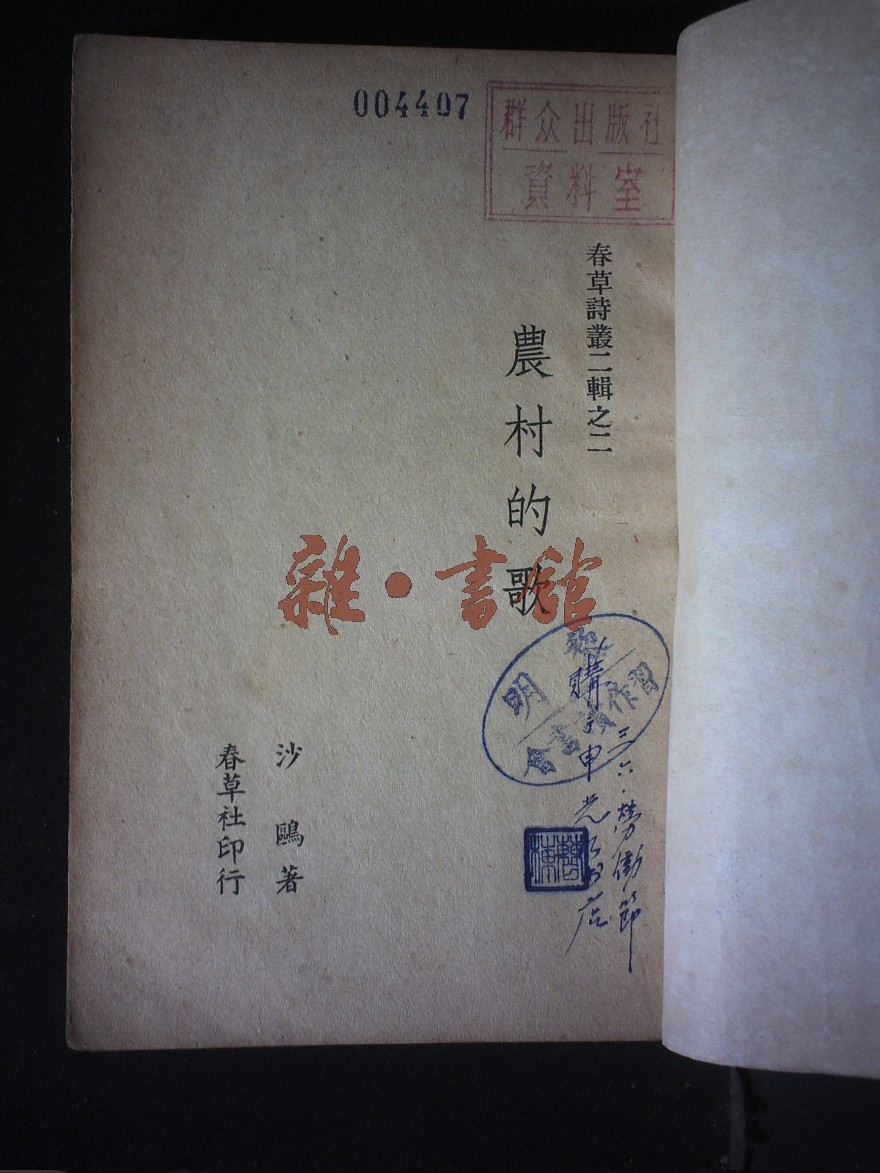 004407
群众出版社
資料室
春草詩叢二輯之二
農村的歌
沙鷗著
春草社印行
雜·書館
三六·勞働節
購于申光
明
習作